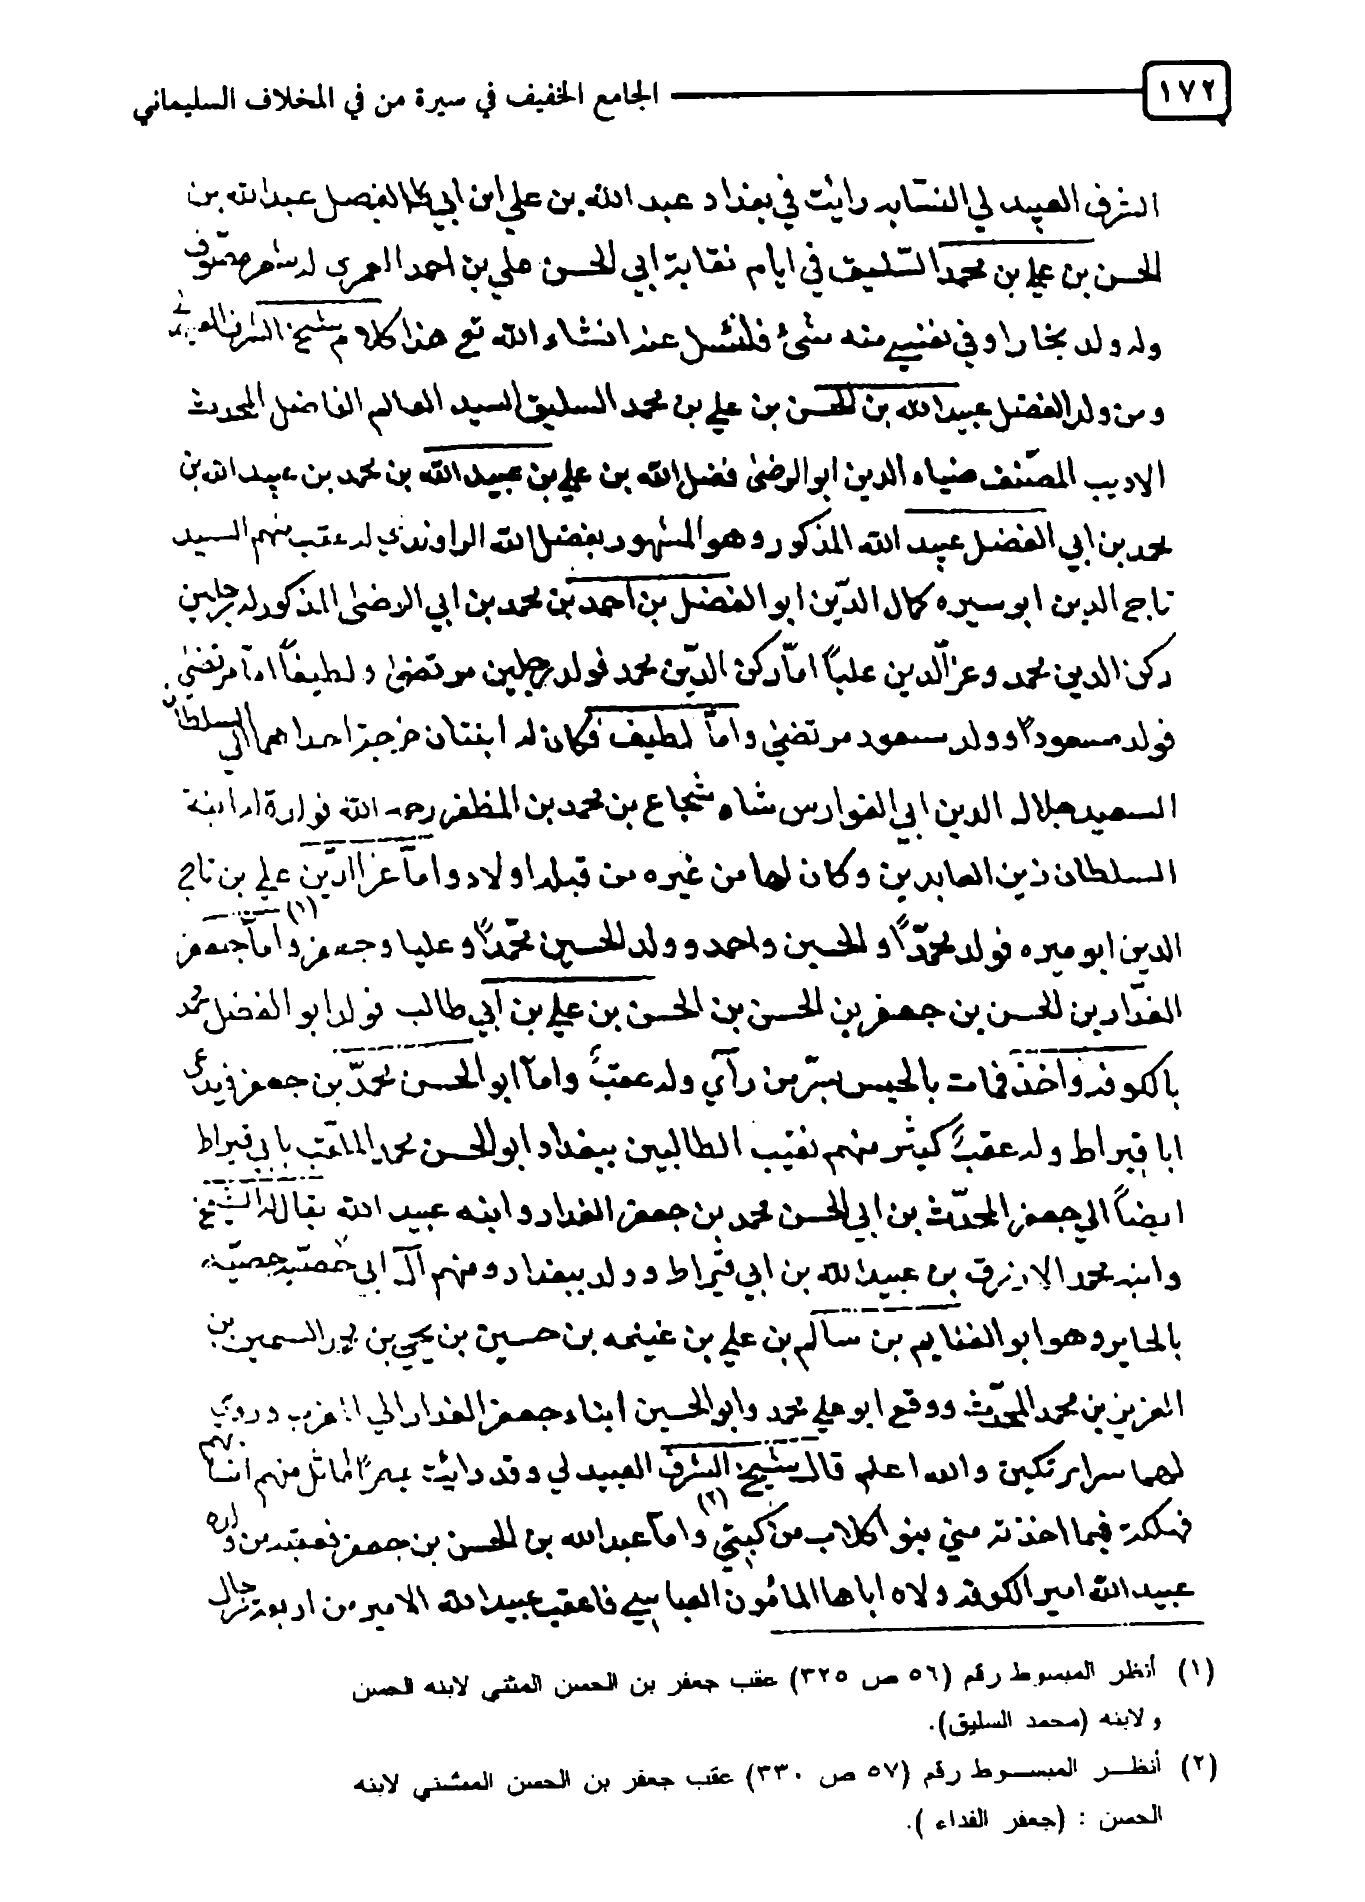 ١٧٢
الجامع الخفيف في سيرة من في المخلاف السليماني
الشرف العبيدلي النسابه رايت في بغداد عبد الله بن علي ابن ابي الفضل عبد الله بن
الحسن بن علي بن محمد السليق في ايام نقابة ابي الحسن علي بن احمد العمري له شعر متصوف
وله ولد بخارا وفي نفسي منه شئ فلنسل عنه انشاء الله تع هذا كلام شيخ الشرف العبيدلي
ومن ولد الفضل عبيد الله بن الحسن بن علي بن محمد السليق السيد العالم الفاضل المحدث
الاديب المصنف ضياء الدين ابو الرضى فضل الله بن علي بن عبيد الله بن محمد بن عبيد الله بن
محمد بن ابي الفضل عبيد الله المذكور وهو المشهور بفضل الله الراوندي له عقب منهم السيد
تاج الدين ابو سيره كمال الدين ابو الفضل بن احمد بن محمد بن ابي الرضى المذكور له رجلين
ركن الدين محمد وعز الدين علياً اما ركن الدين محمد فولد رجلين مرتضى ولطيفاً اما مرتضى
فولد مسعوداً وولد مسعود مرتضى واما لطيف فكان له ابنتان خرجت احداهما الي السلطان
السعيد جلال الدين ابي الفوارس شاه شجاع بن محمد بن المظفر رحمه الله ابنة
السلطان زين العابدين وكان لها من غيره من قبله اولاد واما عز الدين علي بن تاج
الدين ابو ميره فولد محمداً والحسين واحمد وولد الحسين محمداً وعليا وجعفر (١) واما جعفر
الغدار بن الحسن بن جعفر بن الحسن بن الحسن بن علي بن ابي طالب فولد ابو الفضل محمد
بالكوفه واخذ فمات بالحبس بسر من رآي وله عقب واما ابو الحسن محمد بن جعفر فيدعى
ابا قيراط وله عقب كثير منهم نقيب الطالبين ببغداد ابو الحسن محمد الملقب بابي قيراط
ايضاً الي جعفر المحدث بن ابي الحسن محمد بن جعفر الغدار وابنه عبيد الله يقال له الشيخ
وابنه محمد الازرق بن عبيد الله بن ابي قيراط وولد ببغداد ومنهم آل ابي
بالحاير وهو ابو الغنايم بن سالم بن علي بن غنيمه بن حسين بن يحيى بن السمين بن
العزيز بن محمد المحدث ووقع ابو علي محمد وابو الحسين ابناء جعفر الغدار الي المغرب وروي
لهما سرار تكين والله اعلم قال شيخ الشرف العبيدلي وقد رايت بمصر منهم
فهلكت فيما اخذته مني بنو كلاب من كتبي (٢) واما عبد الله بن الحسن بن جعفر فعقبه من ولده
عبيد الله امير الكوفه ولاه اياها المامون العباسي فاعقب عبيد الله الامير من اربعة رجال
(١) أنظر المبسوط رقم (٥٦ ص ٣٢٥) عقب جعفر بن الحسن المثنى لابنه الحسن
ولابنه (محمد السليق).
(٢) أنظر المبسوط رقم (٥٧ ص ٣٣٠) عقب جعفر بن الحسن المثنى لابنه
الحسن : (جعفر الغداء ).